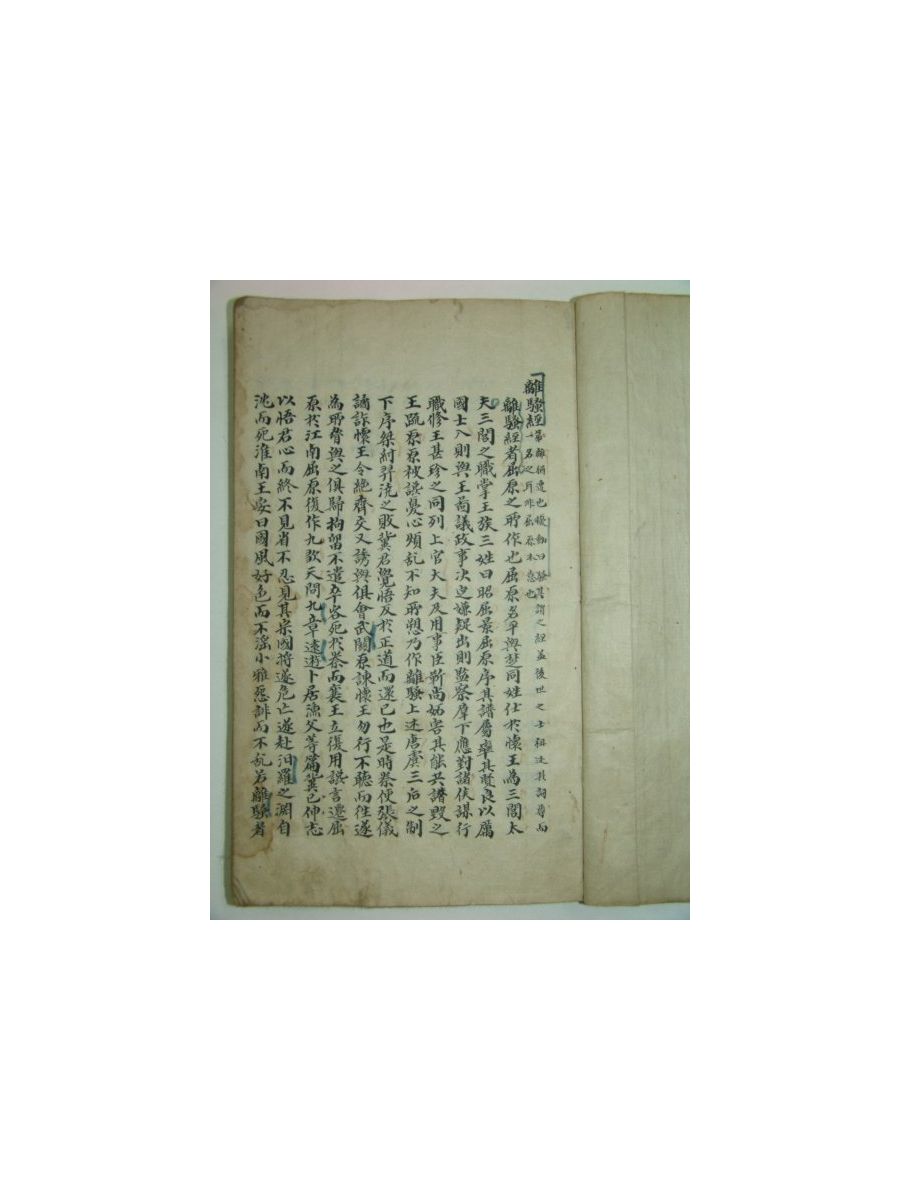 離騷經
第一離猶遭也擾動曰騷其謂之經盖後世之士祖述其詞尊而
名之耳非屈原本意也
離騷經者屈原之所作也屈原名平與楚同姓仕於懷王為三閭大
夫三閭之職掌王族三姓曰昭屈景屈原序其譜屬率其賢良以厲
國士入則與王圖議政事决定嫌疑出則監察羣下應對諸侯謀行
職修王甚珍之同列上官大夫及用事臣靳尚妬害其能共譖毁之
王疏原原被讒憂心煩乱不知所愬乃作離騷上述唐虞三后之制
下序桀紂羿浇之敗冀君覺悟反於正道而還己也是時秦使張儀
譎詐懷王令絶齊交又誘與俱會武關原諫懷王勿行不聽而往遂
為所脅與之俱歸拘留不遣卒客死於秦而襄王立復用讒言遷屈
原於江南屈原復作九歌天問九章遠遊卜居漁父等篇冀己伸志
以悟君心而終不見省不忍見其宗國將遂危亡遂赴汨羅之淵自
沈而死淮南王安曰國風好色而不滛小雅怨誹而不乱若離騷者